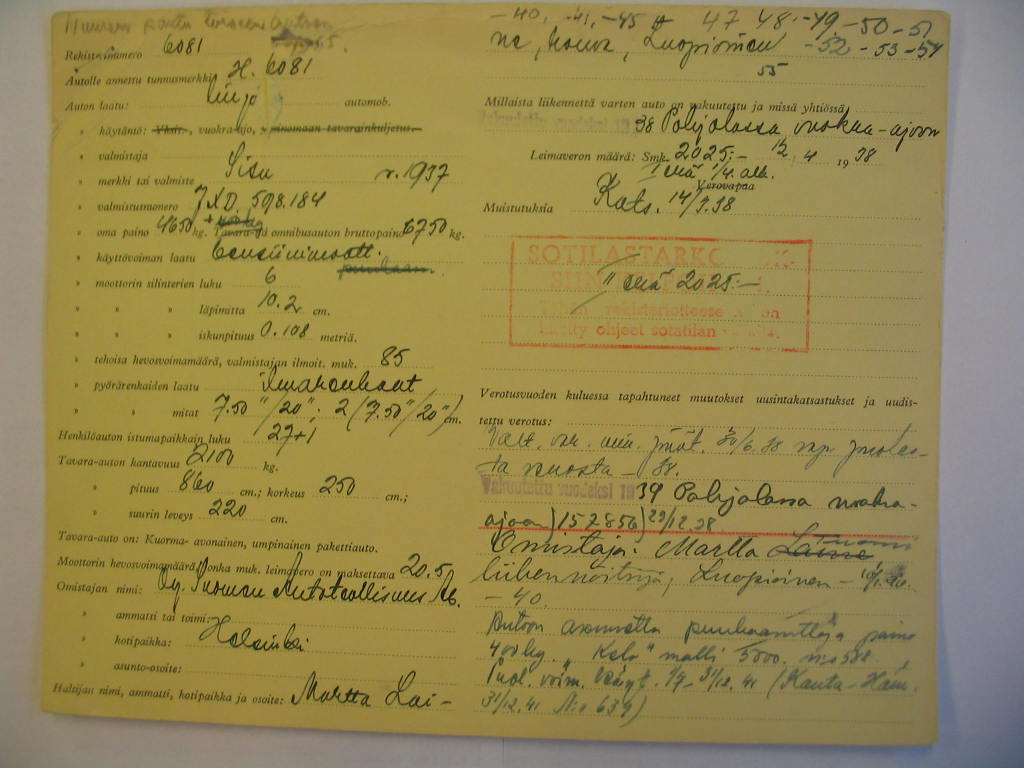 Rekisterinumero 6081
Autolle annettu tunnusmerkki H. 6081
Auton laatu: Linja automob.
" käytäntö: Yksit., vuokra-ajo, yksinomaan tavarainkuljetus.
" valmistaja
" merkki tai valmiste Sisu v. 1937
" valmistusnumero JXD. 598.184
" oma paino 4650 kg. Tavara- tai omnibusauton bruttopaino 6750 kg.
" käyttövoiman laatu bensiinimoott.
puukaasu
" moottorin silinterien luku 6
" " " läpimitta 10.2 cm.
" " " iskunpituus 0.108 metriä.
" tehoisa hevosvoimamäärä, valmistajan ilmoit. muk. 85
" pyöränrenkaiden laatu ilmarenkaat
" " mitat 7.50"/20"; 2 (7.50"/20") cm.
Henkilöauton istumapaikkain luku 27+1
Tavara-auton kantavuus 2100 kg.
" pituus 860 cm.; korkeus 250 cm.;
" suurin leveys 220 cm.
Tavara-auto on: Kuorma- avonainen, umpinainen pakettiauto.
Moottorin hevosvoimamäärä, jonka muk. leimavero on maksettava 20.5
Omistajan nimi: Oy. Suomen Autoteollisuus Ab.
" ammatti tai toimi:
" kotipaikka: Helsinki
" asunto-osoite:
Haltijan nimi, ammatti, kotipaikka ja osoite: Martta Lai-
-40, -41, -45 47 48 -49 -50 -51
ne, rouva, Luopioinen -52 -53 -54
55
Millaista liikennettä varten auto on vakuutettu ja missä yhtiössä
Vakuutettu vuodeksi 1938 Pohjolassa vuokra-ajoon
Leimaveron määrä: Smk. 2025:- 12/4 1938
I erä 1/4. alk.
Verovapaa
Muistutuksia Kats. 14/3.38
SOTILASTARK
II erä 2025:-
rekisteriotteese on
ohjeet sotatilan
Verotusvuoden kuluessa tapahtuneet muutokset uusintakatsastukset ja uudis-
tettu verotus:
Valt. var. min. päät. 30/6.38 vap. puoles-
ta vuosta -38.
Vakuutettu vuodeksi 1939 Pohjolassa vuokra-
ajoon) 157856) 29/12.38
Omistaja: Martta Laine Tuomi
liikennöitsijä, Luopioinen
-40.
Autoon asennettu puukaasuttaja paino
400 kg. "Kelo" malli 5000. n:o 538
31/12.41 (Kanta-Häm.
31/12.41 N:o 639)